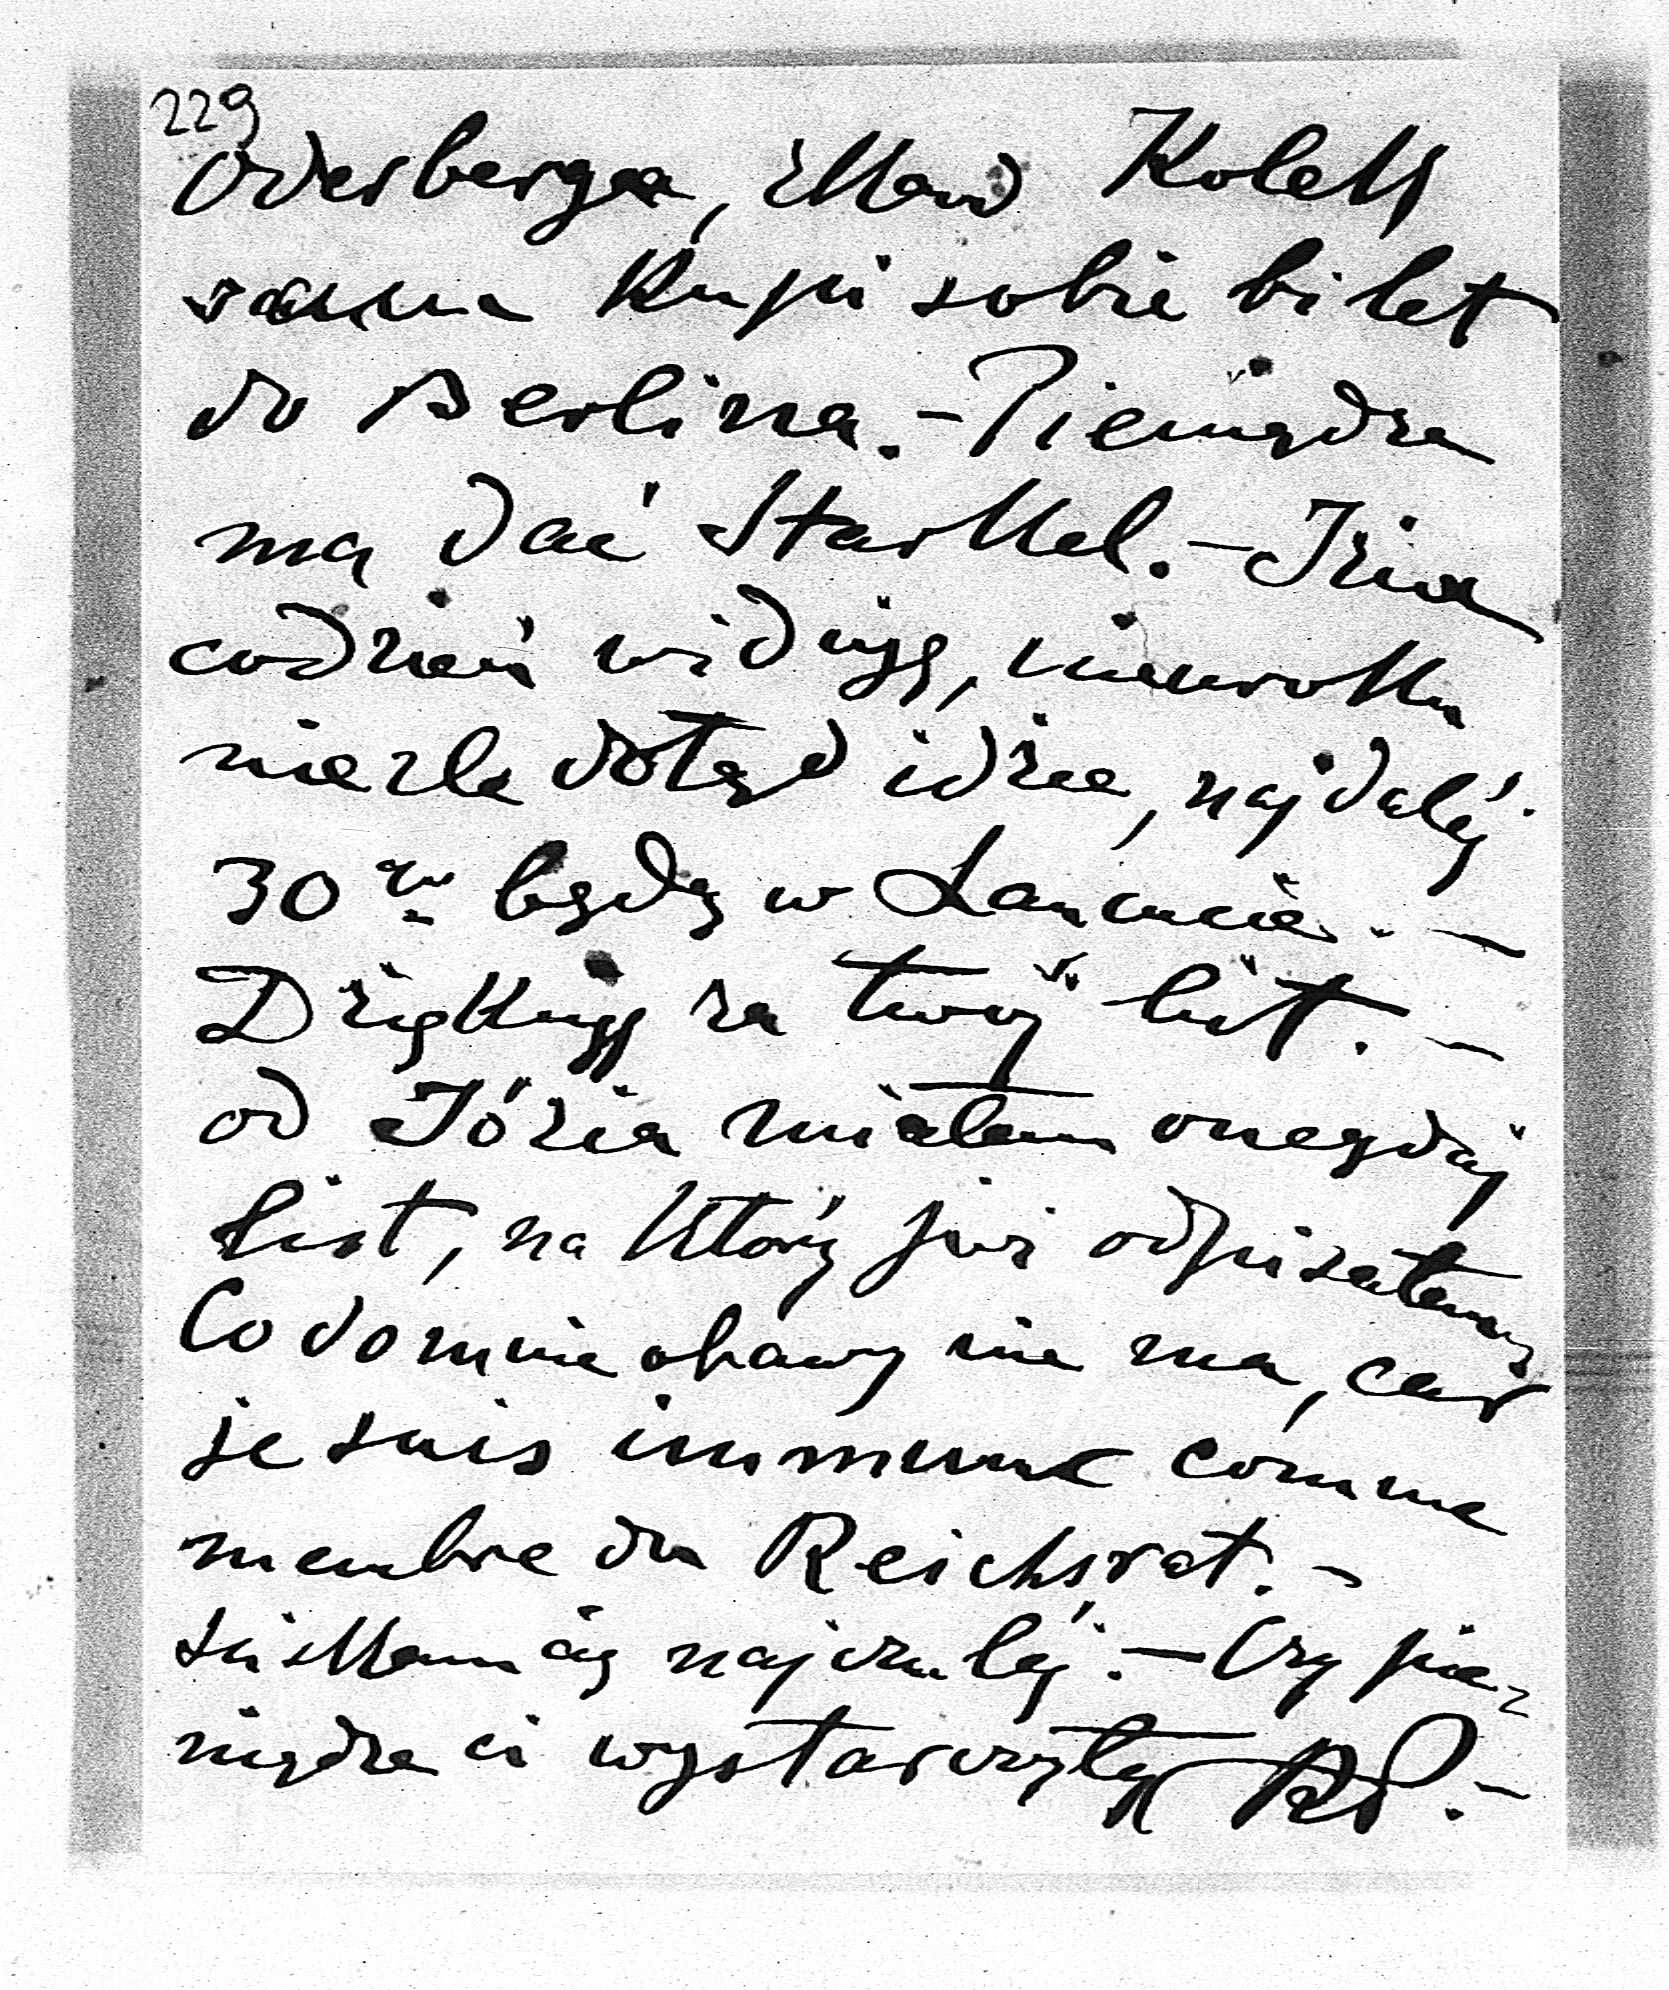 229
Oderberga, skąd Kolek
sama kupi sobie bilet
do Berlina. – Pieniądze
ma dać Starkel. –
codzień widuję,
nieźle dotąd idzie, najdaléj
30go będę w Łańcucie. –
Dziękuję za twój list. –
od Józia miałem onegdaj
list, na który już odpisałem
Co do mnie obawy nie ma, car
je suis immune comme
membre du Reichsrat. –
ściskam cię najczuléj. – Czy pie-
niądze ci wystarczyły RP. –